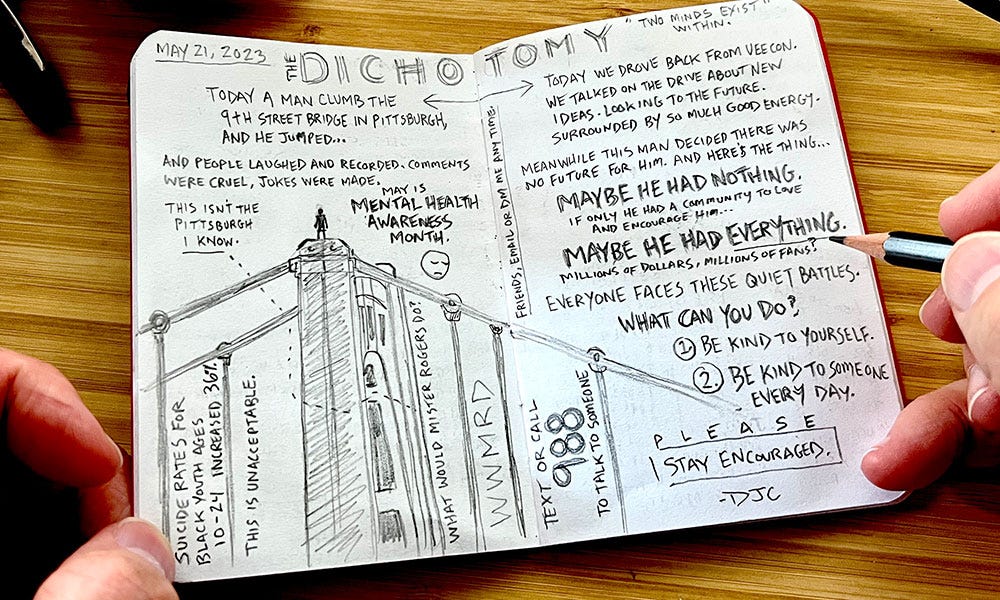 MAY 21, 2023
THE DICHOTOMY
"TWO MINDS EXIST"
WITHIN.
TODAY A MAN CLUMB THE
9TH STREET BRIDGE IN PITTSBURGH,
AND HE JUMPED...
AND PEOPLE LAUGHED AND RECORDED. COMMENTS
WERE CRUEL, JOKES WERE MADE.
THIS ISN'T THE
PITTSBURGH
I KNOW.
MAY IS
MENTAL HEALTH
AWARENESS
MONTH.
SUICIDE RATES FOR
BLACK YOUTH AGES
10-24 INCREASED 36%.
THIS IS UNACCEPTABLE.
WHAT WOULD MISTER ROGERS DO?
WWMRD
FRIENDS, EMAIL OR DM ME ANY TIME.
TODAY WE DROVE BACK FROM VEECON.
WE TALKED ON THE DRIVE ABOUT NEW
IDEAS. LOOKING TO THE FUTURE.
SURROUNDED BY SO MUCH GOOD ENERGY.
MEANWHILE THIS MAN DECIDED THERE WAS
NO FUTURE FOR HIM. AND HERE'S THE THING...
MAYBE HE HAD NOTHING.
IF ONLY HE HAD A COMMUNITY TO LOVE
AND ENCOURAGE HIM...
MAYBE HE HAD EVERYTHING.
MILLIONS OF DOLLARS, MILLIONS OF FANS?
EVERYONE FACES THESE QUIET BATTLES.
WHAT CAN YOU DO?
1 BE KIND TO YOURSELF.
2. BE KIND TO SOMEONE
EVERY DAY.
TEXT OR CALL
988
TO TALK TO SOMEONE
PLEASE
STAY ENCOURAGED.
-DJC